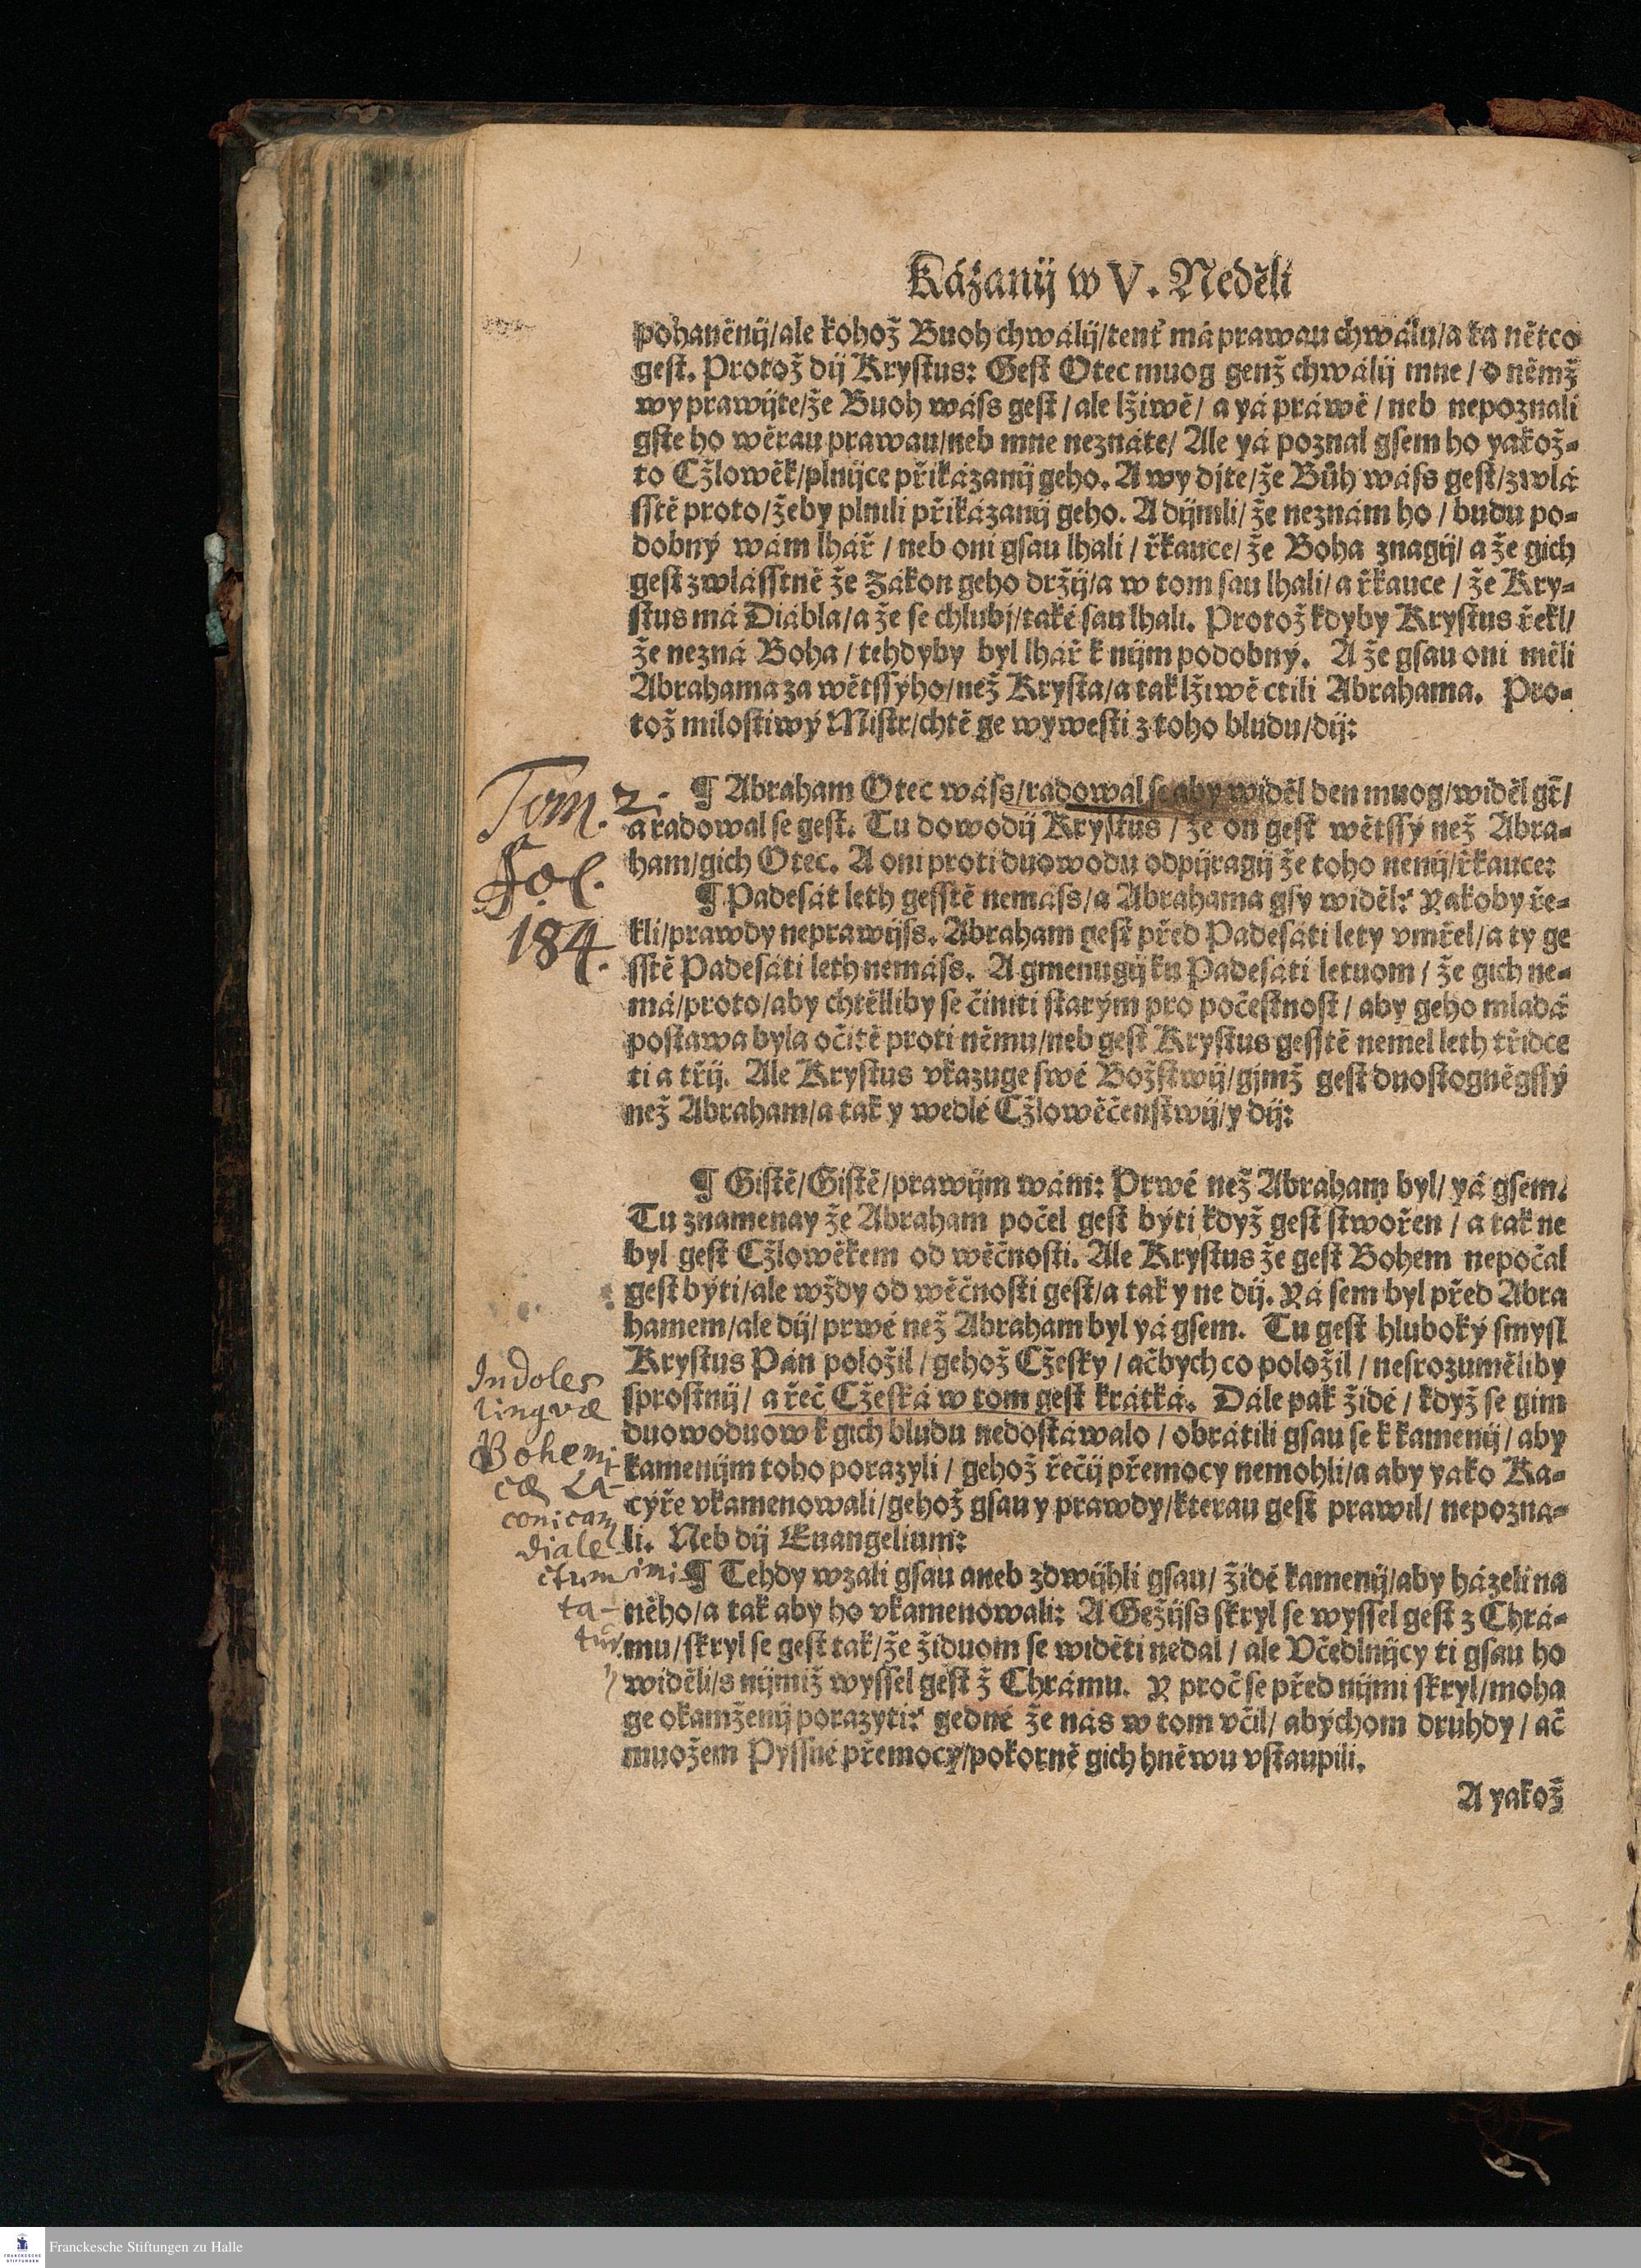 Kázanij w V. Neděli
pohaněnij/ale kohož Buoh chwálij/tenť má prawau chwálu/a ta nětco
gest. Protož dij Krystus: Gest Otec muog genž chwálij mne / o němž
wy prawijte/že Buoh wáss gest / ale lžiwě / a yá práwě / neb nepoznali
gste ho wěrau prawau/neb mne neznáte/ Ale yá poznal gsem ho yakož-
to Cžlowěk/plnijce přikázanij geho. A wy díte/že Bůh wáss gest/zwlá
sstě proto/žeby plnili přikázanij geho. A dijmli/ že neznám ho / budu po-
dobný wám lhář / neb oni gsau lhali / řkauce/ že Boha znagij/ a že gich
gest zwlásstně že Zákon geho držij/a w tom sau lhali/ a řkauce / že Kry-
stus má Diábla/a že se chlubí/také sau lhali. Protož kdyby Krystus řekl/
že nezná Boha / tehdyby byl lhář k nijm podobný. A že gsau oni měli
Abrahama za wětssýho/než Krysta/a tak lžiwě ctili Abrahama. Pro-
tož milostiwý Mistr/chtě ge wywesti z toho bludu/dij:
Tom. 2.
Fol.
184.
¶ Abraham Otec wáss/radowal se aby widěl den muog/widěl gt̃/
a radowal se gest. Tu dowodij Krystus / že on gest wětssý než Abra-
ham/gich Otec. A oni proti duowodu odpijragij že toho nenij/řkauce:
¶ Padesát leth gesstě nemáss/a Abrahama gsy widěl? Yakoby ře-
kli/prawdy neprawijss. Abraham gest před Padesáti lety vmřel/a ty ge
sstě Padesáti leth nemáss. A gmenugij ku Padesáti letuom / že gich ne-
má/proto/aby chtělliby se činiti starým pro počestnost / aby geho mladá
postawa byla očitě proti němu/neb gest Krystus gesstě nemel leth třidce
ti a třij. Ale Krystus vkazuge swé Božstwij/gjmž gest duostogněgssý
než Abraham/a tak y wedlé Cžlowěčenstwij/y dij:
¶ Gistě/Gistě/prawijm wám: Prwé než Abraham byl/ yá gsem.
Tu znamenay že Abraham počel gest býti když gest stwořen / a tak ne
byl gest Cžlowěkem od wěčnosti. Ale Krystus že gest Bohem nepočal
gest býti/ale wždy od wěčnosti gest/a tak y ne dij. Yá sem byl před Abra
hamem/ale dij/ prwé než Abraham byl yá gsem. Tu gest hluboký smysl
Krystus Pán položil / gehož Cžesky / ačbych co položil / nesrozuměliby
sprostnij/ a řeč Cžeská w tom gest krátká. Dále pak židé / když se gim
duowoduow k gich bludu nedostáwalo / obrátili gsau se k kamenij / aby
kamenijm toho porazyli / gehož řečij přemocy nemohli/a aby yako Ka-
cýře vkamenowali/gehož gsau y prawdy/kterau gest prawil/ nepozna-
li. Neb dij Euangelium:
Indoles
lingvæ
Bohemi-
cæ La-
conicam
diale
ctum imi
ta-
tur
¶ Tehdy wzali gsau aneb zdwijhli gsau/ židé kamenij/aby házeli na
něho/a tak aby ho vkamenowali: A Gežijss skryl se wyssel gest z Chrá-
mu/skryl se gest tak/že židuom se widěti nedal / ale Včedlnijcy ti gsau ho
widěli/s nijmiž wyssel gest ž Chrámu. Y proč se před nijmi skryl/moha
ge okamženij porazyti? gedné že nás w tom včil/ abýchom druhdy / ač
muožem Pyssné přemocy/pokorně gich hněwu vstaupili.
A yakož
Franckesche Stiftungen zu Halle
FRANCKESCHE STIFTUNGEN